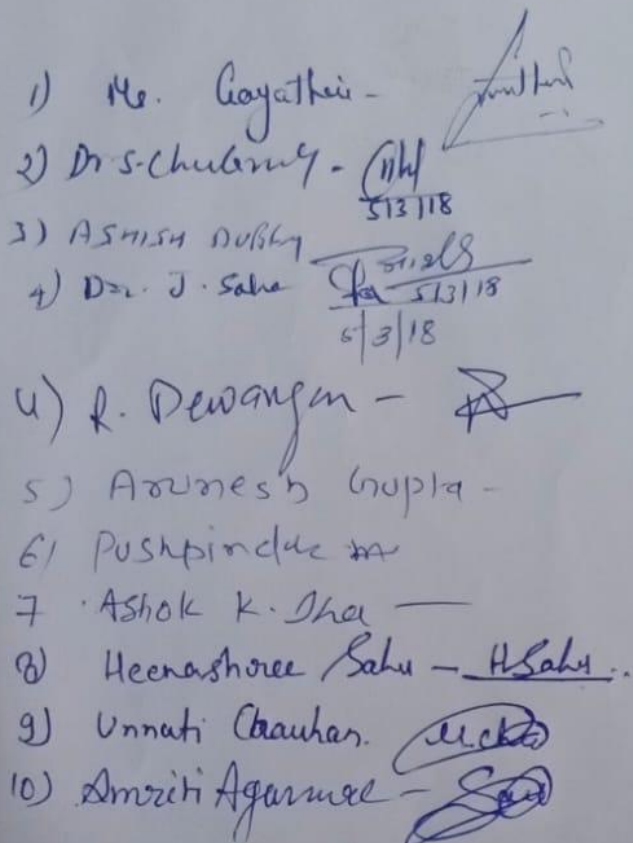 1) Me. Gayathri -
2) Dr S. - 
5/3/18
3) ASHISH DUBEY
4) Dr. J. Saha 5/3/18
5/3/18
4) R. Dewangan -
5) Arunesh Gupta -
6) Pushpinder
7 Ashok K. Jha —
8) Heenashree Sahu - HSahu
9) Unnati Chauhan.
10) Amriti Agarwal -